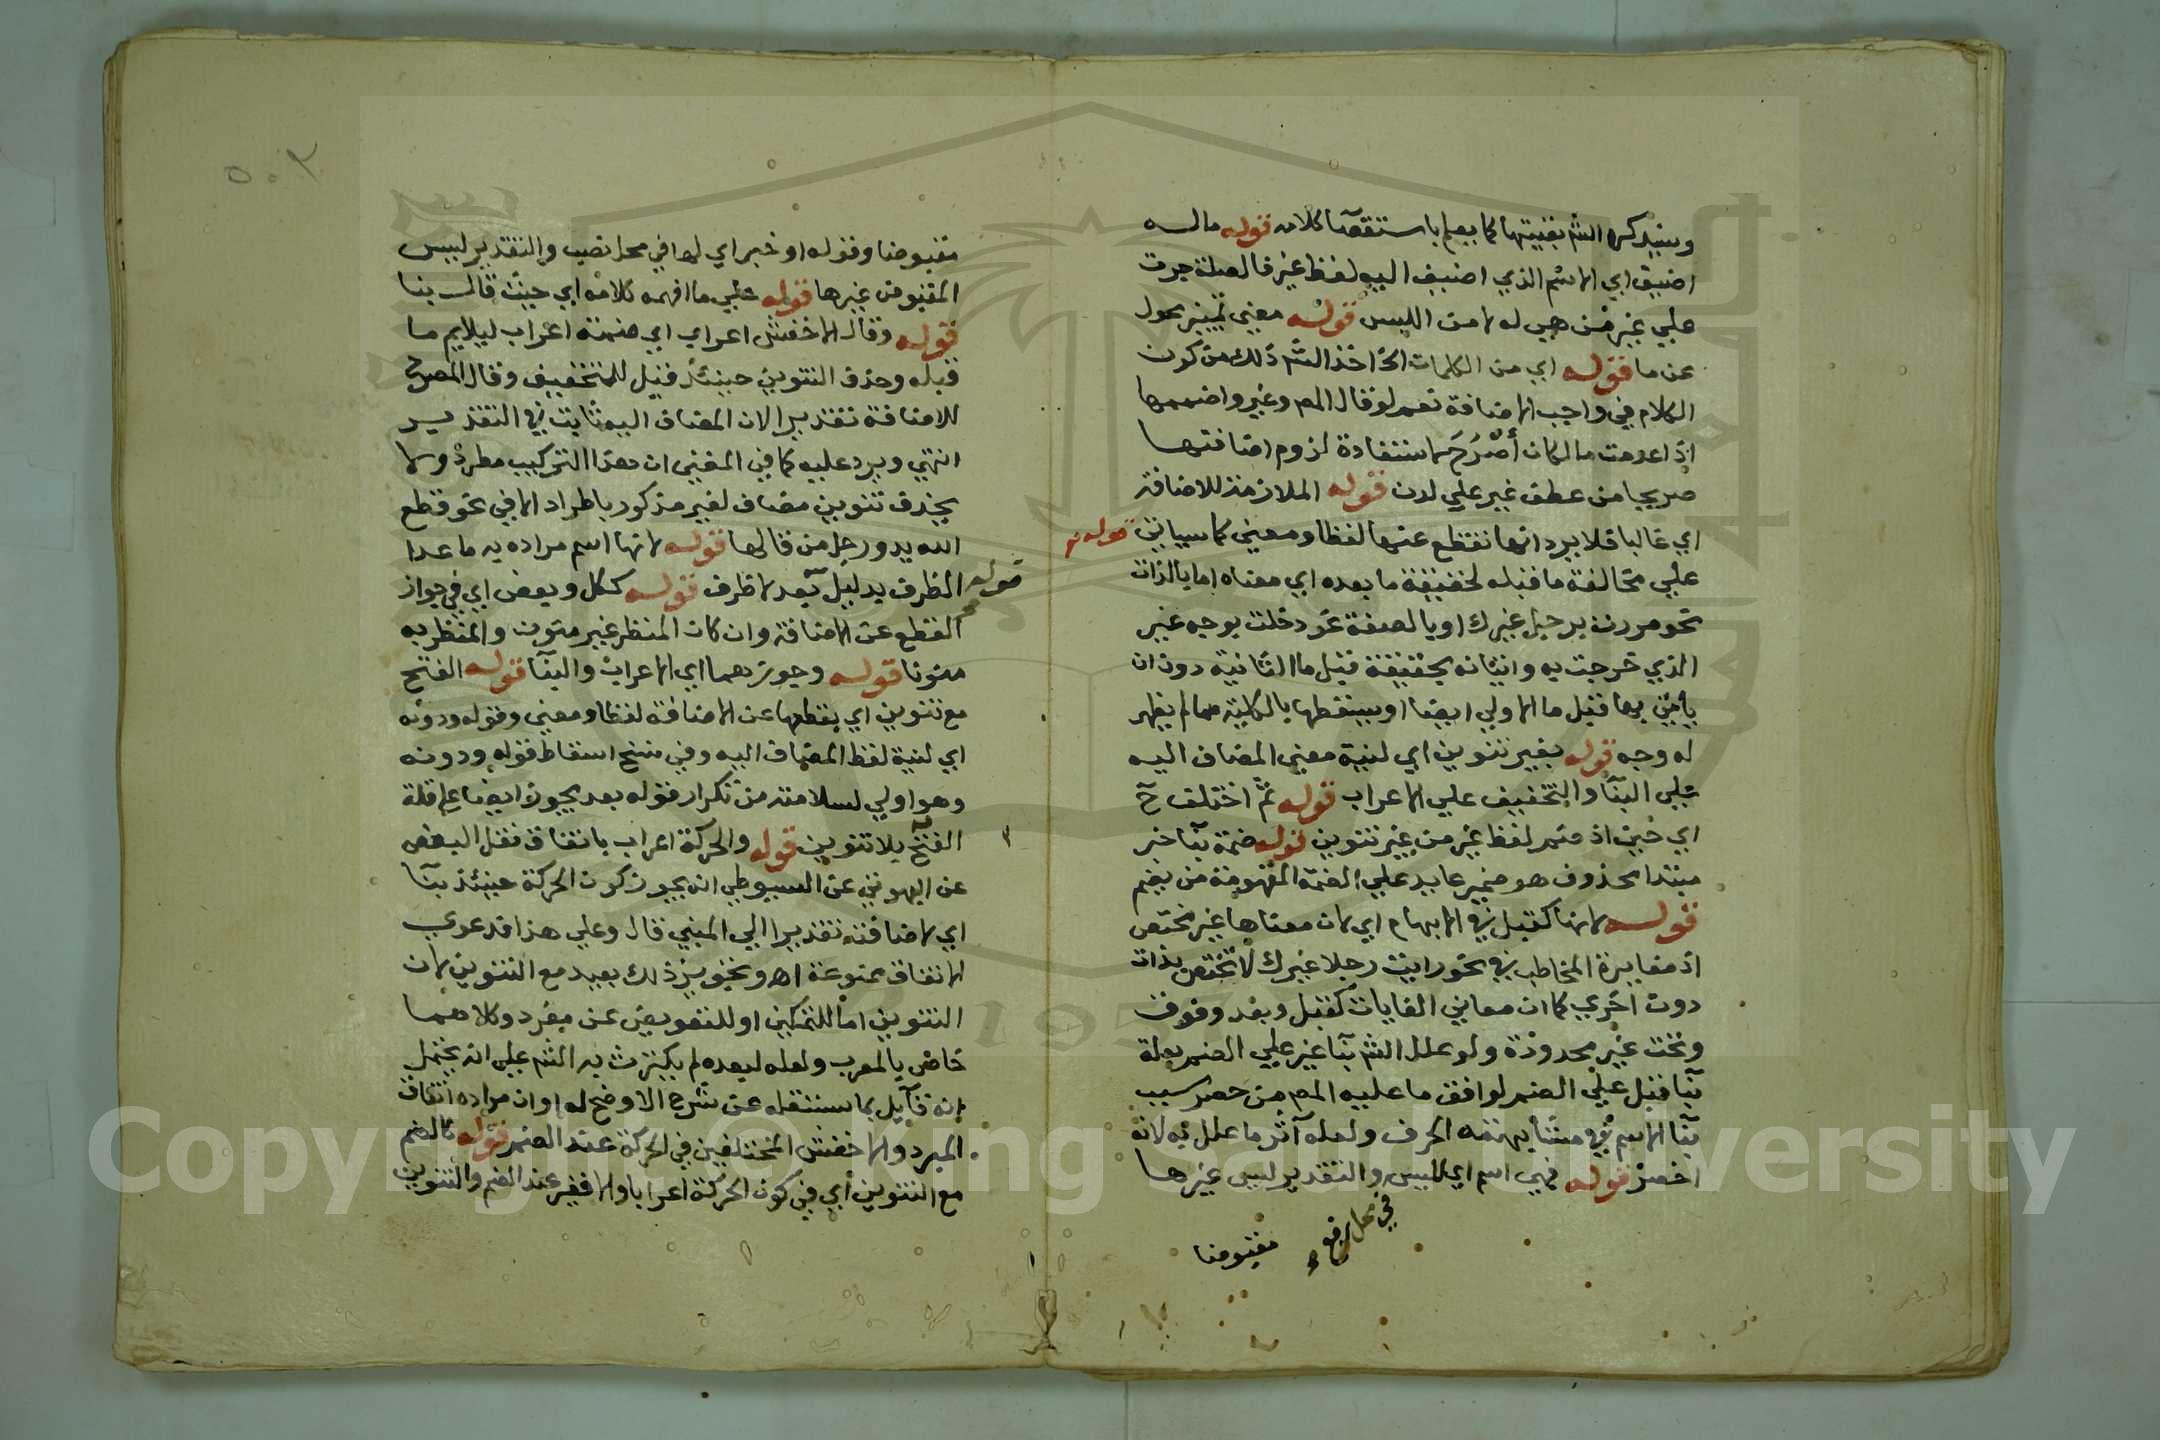 وسيذكره الشم بقيتها كما يعلم باستقصآ كلامه قوله ما له
اضيق اي الاسم الذي اضيف اليه لفظ غير فالصلة جرت
علي غير من هي له لا من اللبس قوله معني تمييز محول
عن ما قوله اي من الكلمات الخ اخذ الشم ذلك من كون
الكلام في واجب الاضافة نعم لو قال المص وغير واضممها
اذ اعدمت ما لكان أصْرَحَ لاستفادة لزوم اضافتها
صريحا من عطف غير علي لدن قوله الملازمة للاضافة
اي غالبا فلا يرد انها تقطع عنها لفظا ومعني كما سياتي قوله
علي مخالفة ما قبله لحقيقة ما بعده اي معناه اما بالذات
نحو مررت برجل غيرك او بالصفة نحو دخلت بوجه غير
الذي خرجت به واتيانه بحقيقة قبل ما الثانية دون ان
ياتي بها قبل ما الاولي ايضا او يسقطها بالكلية مما لم يظهر
له وجه قوله بغير تنوين اي لنية معني المضاف اليه
علي البنآ والتخفيف علي الاعراب قوله ثم اختلف ح
اي حين اذ ضم لفظ غير من غير تنوين قوله ضمة بنآ خبر
مبتدا محذوف هو ضمير عايد علي الضمة المفهومة من يضم
قوله لانها كقبل في الابهام اي لان معناها غير مختص
اذ مغايرة المخاطب في نحو رايت رجلا غيرك لا تختص بذات
دون اخري كما ان معاني الغايات كقبل وبعد وفوق
وتحت غير محدودة ولو علل الشم بنآ غير علي الضم بعلة
بنآ قبل علي الضم لوافق ما عليه المص من حصر سبب
بنآ الاسم في مشابهته الحرف ولعله آثر ما علل به لانه
اخصر قوله فهي اسم اي لليس والتقدير ليس غيرها
في محل رفع
مقبوضا
مقبوضا وقوله او خبر اي لها في محل نصب والتقدير ليس
المقبوض غيرها قوله علي ما افهمه كلامه اي حيث قال بنا
قوله وقال الاخفش اعراب اي ضمته اعراب ليلايم ما
قبله وحذف التنوين حينئذ قيل للتخفيف وقال المصرح
للاضافة تقديرا لان المضاف اليه ثابت في التقدير
انتهي ويرد عليه كما في المغني ان هذا التركيب مطرد ولا
يحذف تنوين مضاف لغير مذكور باطراد الا في نحو قطع
الله يد ورجل من قالها قوله لانها اسم مراده به ما عدا
الظرف بدليل بعد لا ظرف قوله ككل وبعض اي في جواز
قوله
القطع عن الاضافة وان كان المنظر غير منون والمنظر به
منونا قوله وجوزهما اي الاعراب والبنآ قوله الفتح
مع تنوين اي بقطعها عن الاضافة لفظا ومعني وقوله ودونه
اي لنية لفظ المضاف اليه وفي نسخ اسقاط قوله ودونه
وهو اولي لسلامته من تكرار قوله بعد يجوز ايضا علي قلة
الفتح بلا تنوين قوله والحركة اعراب باتفاق نقل البعض
عن البهوتي عن السيوطي انه يجوز كون الحركة حينئذ بنآ
اي لاضافته تقديرا الي المبني قال وعلي هذا فدعوي
الاتفاق ممنوعة اه وتجويز ذلك بعيد مع التنوين لان
التنوين اما للتمكين او للتعويض عن مفرد وكلاهما
خاص بالمعرب ولعله لبعده لم يكترث به الشم علي انه يحتمل
انه قايل بما سننقله عن شرح الاوضح له او ان مراده اتفاق
المبرد والاخفش المختلفين في الحركة عند الضم قوله كالضم
مع التنوين أي في كون الحركة اعرابا والا فغير عند الضم والتنوين